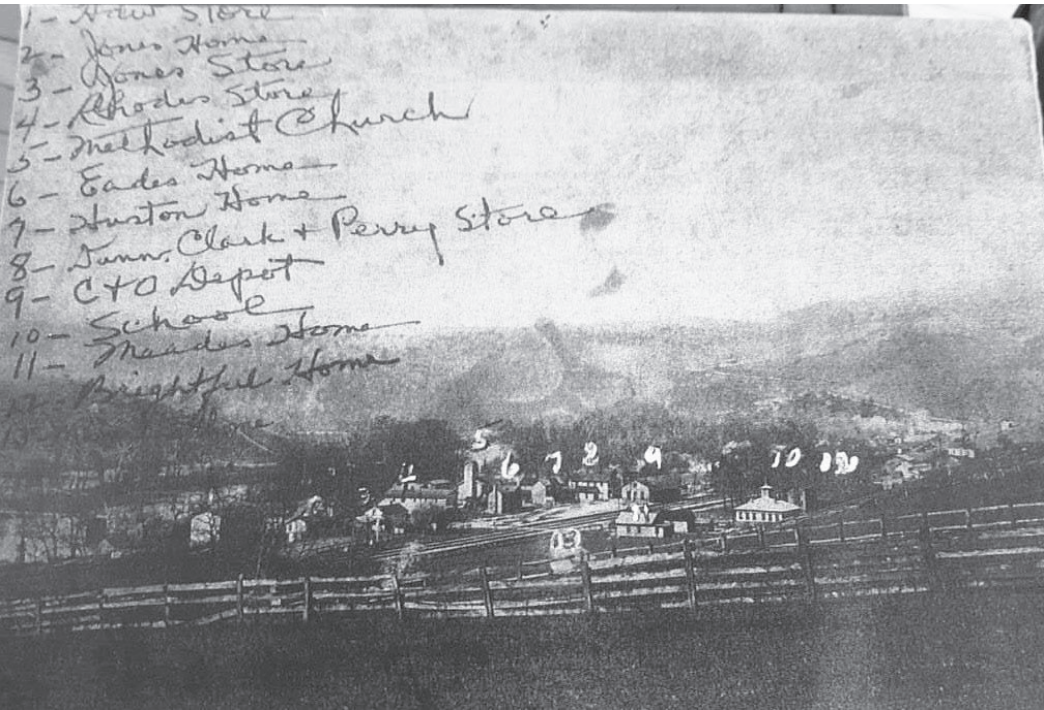 1- New Store
2- Jones Home
3- Jones Store
4- Rhodes Store
5- Methodist Church
6- Eades Home
7- Huston Home
8- Dunn, Clark + Perry Store
9- C+O Depot
10- School
11- Meades Home
12- Brightful Home
13- Home
5
6 7 8 9 10 12
13